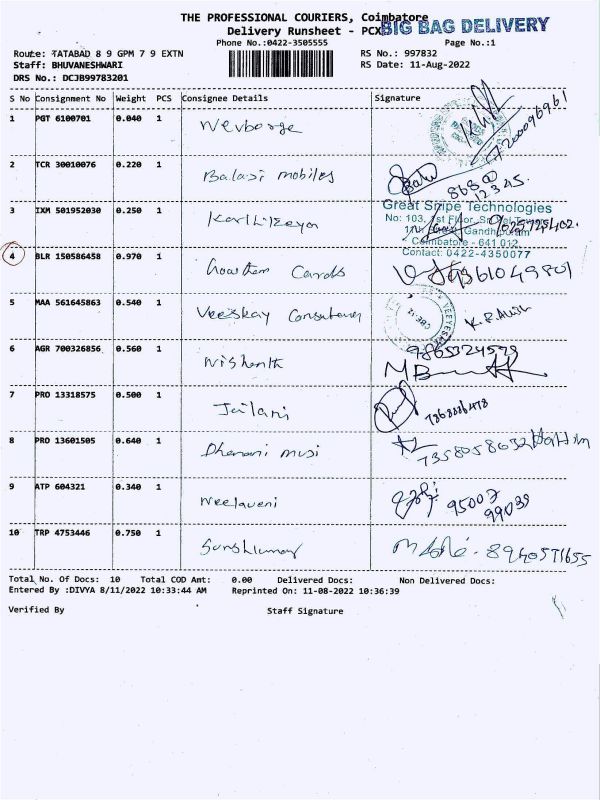 THE PROFESSIONAL COURIERS, Coimbatore
Delivery Runsheet - PCX
BIG BAG DELIVERY
Phone No.:0422-3505555
Page No.:1
Route: TATABAD 8 9 GPM 7 9 EXTN
RS No.: 997832
Staff: BHUVANESHWARI
RS Date: 11-Aug-2022
DRS No.: DCJB99783201
S No Consignment No Weight PCS Consignee Details Signature
1 PGT 6100701 0.040 1
7200096961
2 TCR 30010076 0.220 1 Balaji mobiles
868@
12345.
3 IXM 501952030 0.250 1 Karthikeyan
Great Snipe Technologies
No: 103, 1st Floor,
Gandhipuram
Coimbatore - 641 012
Contact: 0422-4350077
4 BLR 150586458 0.970 1 Gowthem Cards
9361049801
5 MAA 561645863 0.540 1 Veeskay
6 AGR 700326856 0.560 1 Nishanth
9865324579
7 PRO 13318575 0.500 1 Jailani
8 PRO 13601505 0.640 1
7358058632
9 ATP 604321 0.340 1 Neelaveni
95007
99039
10 TRP 4753446 0.750 1
8940571655
Total No. Of Docs: 10 Total COD Amt: 0.00 Delivered Docs: Non Delivered Docs:
Entered By :DIVYA 8/11/2022 10:33:44 AM Reprinted On: 11-08-2022 10:36:39
Verified By Staff Signature